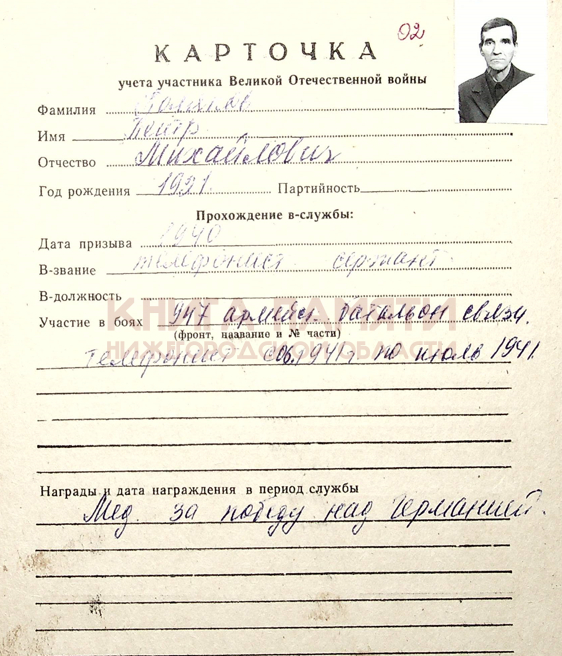 02
КАРТОЧКА
учета участника Великой Отечественной войны
Фамилия
Имя Петр
Отчество Михайлович
Год рождения 1921. Партийность
Прохождение в-службы:
Дата призыва 1940
В-звание телефонист сержант
В-должность
Участие в боях 947 армейс. батальон связи.
(фронт, название и № части)
телефонист с 06.1941г по июль 1941.
Награды и дата награждения в период службы
Мед. за победу над Германией.
КНИГА ПАМЯТИ
НИЖЕГОРОДСКОЙ ОБЛАСТИ